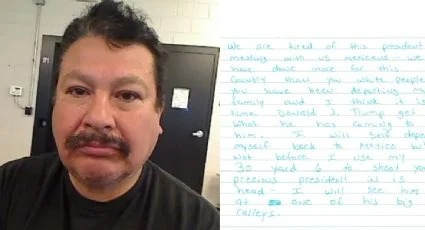 We are tired of this president
messing with us mexicans - we
have done more for this
Country than you white people
you have been deporting my
family and I think it is
time Donald J. Trump get
what he has coming to
him. I will self depor
myself back to Mexico but
not before I use my
30 yard 6 to shoot your
precious president in is
head - I will see him
at one of his big
ralleys.